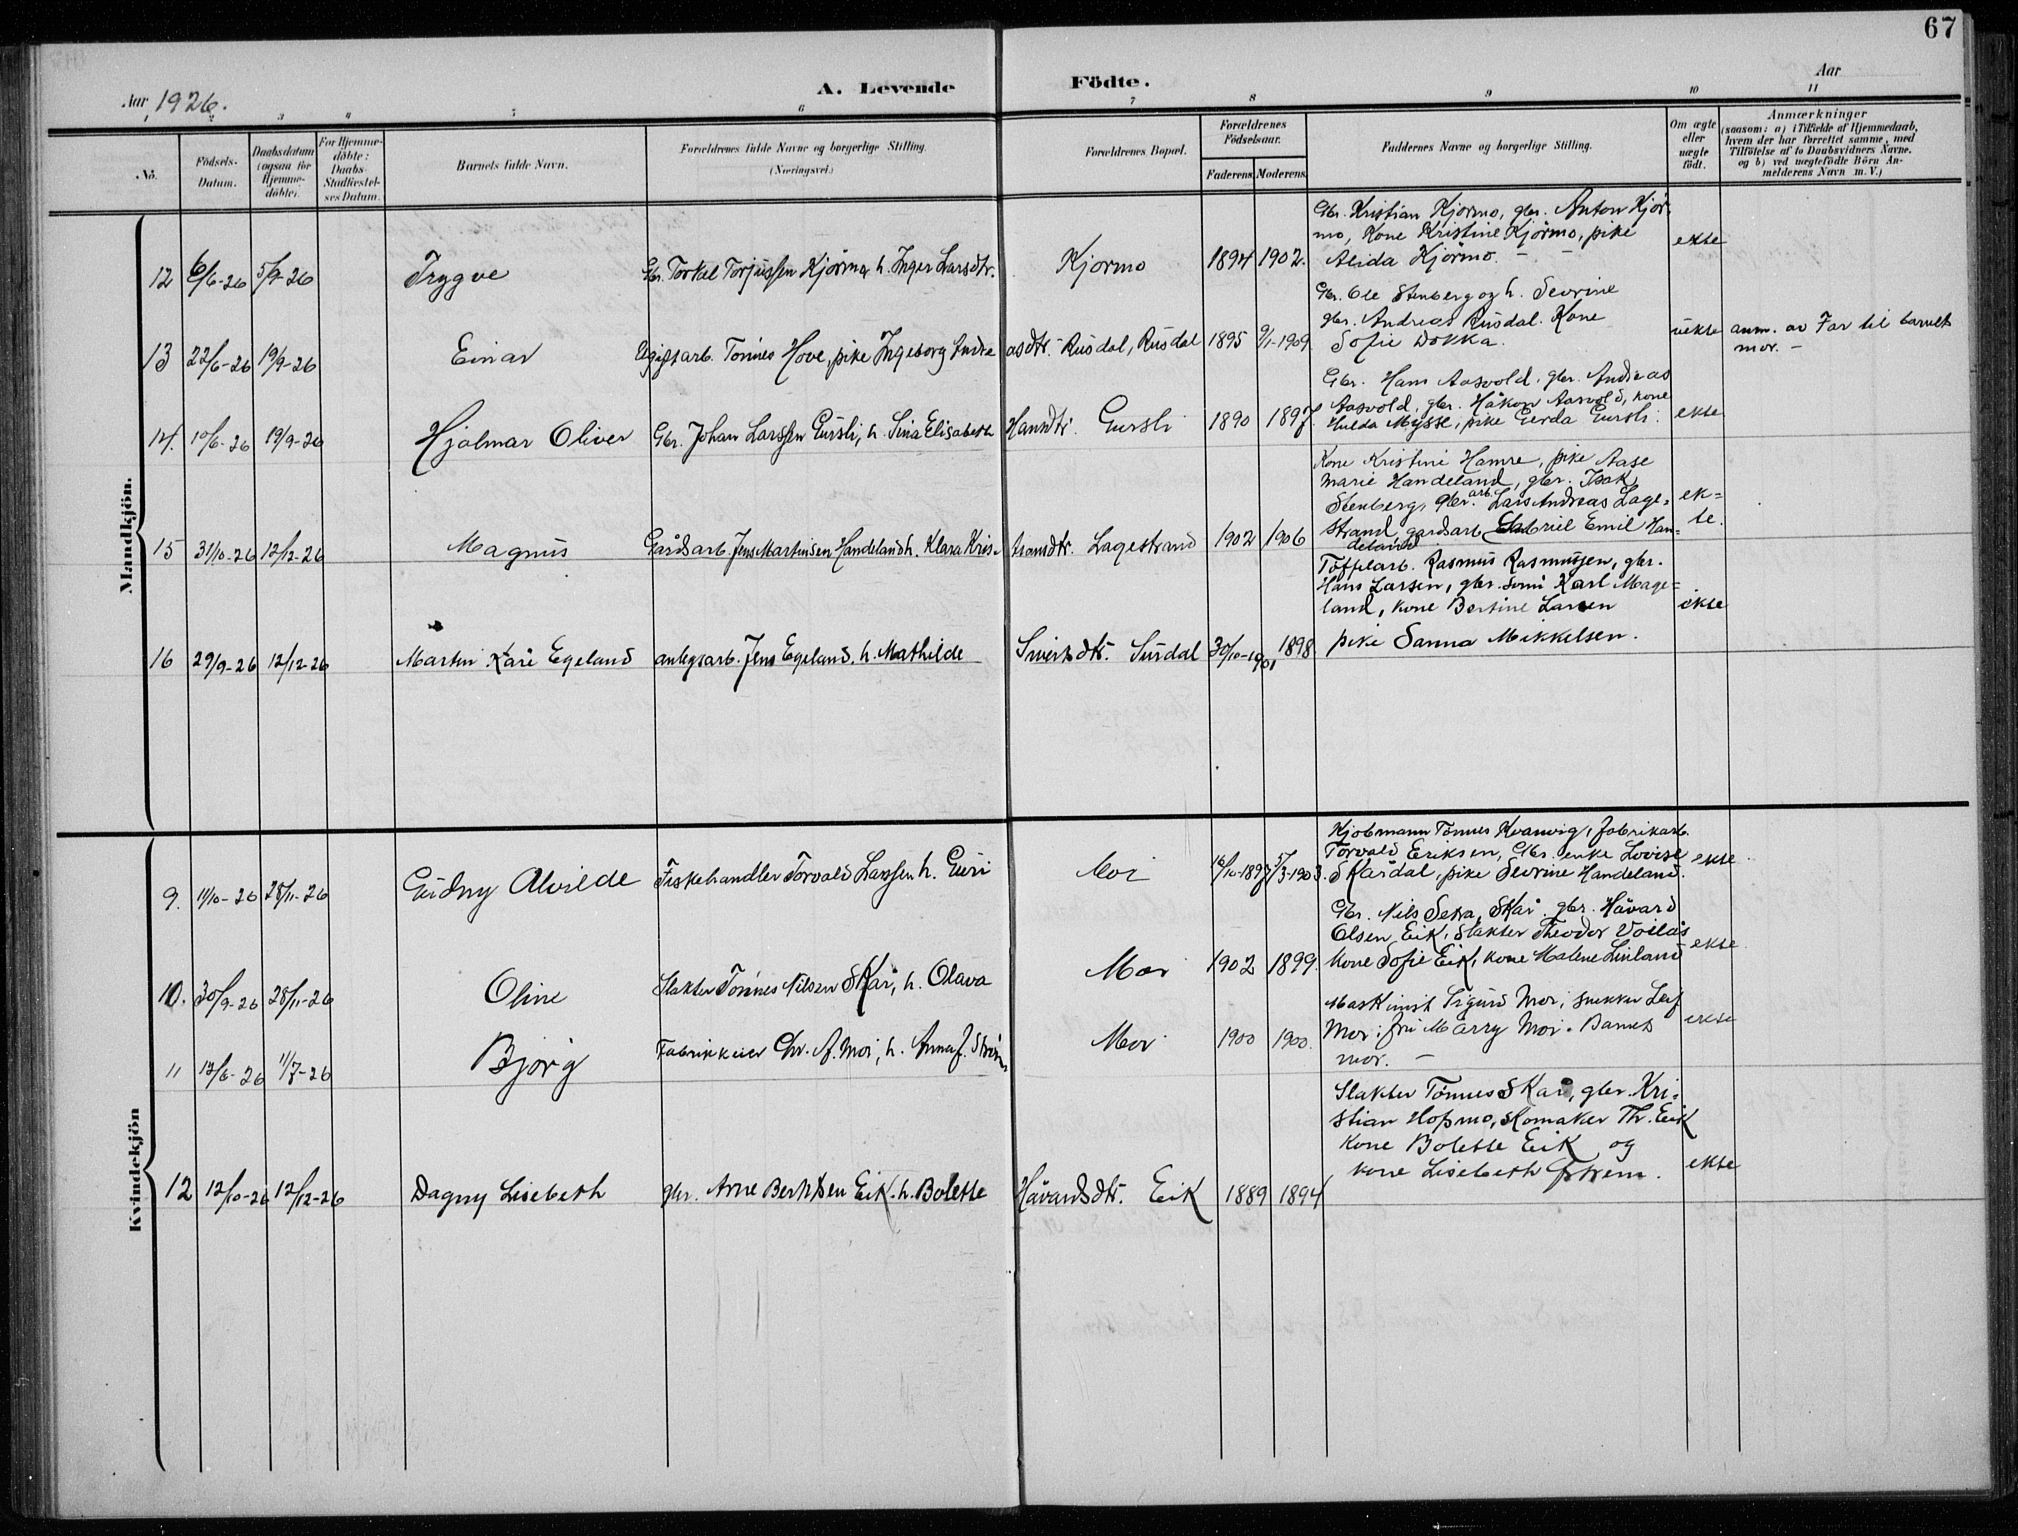 67
A. Levende Födte.
Aar 1926.
Aar
1 2 3 4 5 6 7 8 9 10 11
No.
Födsels-Datum.
Daabsdatum (ogsaa for Hjemmedöbte).
For Hjemmedöbte: Daabs-Stadfæstelses Datum.
Barnets fulde Navn.
Forældrenes fulde Navne og borgerlige Stilling. (Næringsvei.)
Forældrenes Bopæl.
Forældrenes Födselsaar.
Faderens Moderens.
Faddernes Navne og borgerlige Stilling.
Om ægte eller uægte født.
Anmærkninger
(saasom: a) i Tilfælde af Hjemmedaab, hvem der har forrettet samme, med Tilföielse af to Daabsvidners Navne. og b) ved uægtefödte Börn Anmelderens Navn m. V.)
Mandkjön.
12 6/6-26 5/9-26 Trygve Gbr. Torkel Torjussen Kjørmo, h. Inger Larsdtr. Kjørmo 1894 1902.
Gbr. Kristian Kjørmo, gbr. Anton Kjør-
mo, Kone Kristine Kjørmo, pike
Alida Kjørmo. - - ekte
13 22/6-26 19/9-26 Einar Ugift arb. Tønnes Hove, pike Ingeborg Andreasdtr. Rusdal, Rusdal 1895 9/1-1909
Gbr. Ole Stenberg og h. Sevrine
gbr. Andreas Rusdal. Kone
Sofie Dokka. uekte anm. av Far til barnets
mor. -
14. 10/6-26 19/9-26 Hjalmar Oliver Gbr. Johan Larssen Gursli, h. Sina Elisabeth Hansdtr. Gursli 1890 1897.
Gbr. Hans Aasvold, gbr. Andreas
Aasvold, gbr. Håkon Aasvold, kone
Hulda Mysse, pike Gerda Gursli. ekte
15 31/10-26 12/12-26 Magnus Gårdsarb. Jens Martinsen Handeland h. Klara Kristiansdtr. Lagestrand 1902 1906
Kone Kristine Hamre, pike Aase
Marie Handeland, gbr. Isak
Stenberg, gbr. arb. Lars Andreas Lage-
strand, gardsarb. Gabriel Emil Han-
deland ek-
te.
16 29/9-26 12/12-26 Martin Kåre Egeland anlegsarb. Jens Egeland. h. Mathilde Sivertsdtr. Surdal 30/10-1901 1898
Tøffelarb. Rasmus Rasmussen, gbr.
Hans Larsen, gbr. sønn Karl Mage-
land, kone Bertine Larsen
pike Sanna Mikkelsen. ekte
Kvindekjön
9. 11/10-26 28/11-26 Gudny Alvilde Fiskehandler Torvald Larssen h. Guri Moi 16/10-1897 5/3-1903.
Kjøbmann Tønnes Kvanvig, fabrikarb.
Torvald Eriksen, Gbr. enke Lovise
Skårdal, pike Sevrine Handeland. ekte
10. 30/9-26 28/11-26 Oline Slakter Tønnes Nilsen Skår, h. Olava Moi 1902 1899.
Gbr. Nils Setra, Skår. gbr. Håvard
Olsen Eik, slakter Theodor Voilås
Kone Sofie Eik, kone Malene Linland ekte
11 12/6-26 1/7-26 Bjørg Fabrikkeier Chr. A. Moi, h. Anna J. Moi 1900 1900.
Maskinist Sigurd Moi, snekker Leif
Moi, fru Marry Moi. Barnets
mor. - ekte
12 12/10-26 12/12-26 Dagny Lisebeth gbr. Arne Berntsen Eik. h. Bolette Håvardsdtr. Eik 1889 1894
Slakter Tønnes Skår, gbr. Kri-
stian Hopmo, skomaker Th. Eik
kone Bolette Eik og
kone Lisebeth Ystrem. ekte